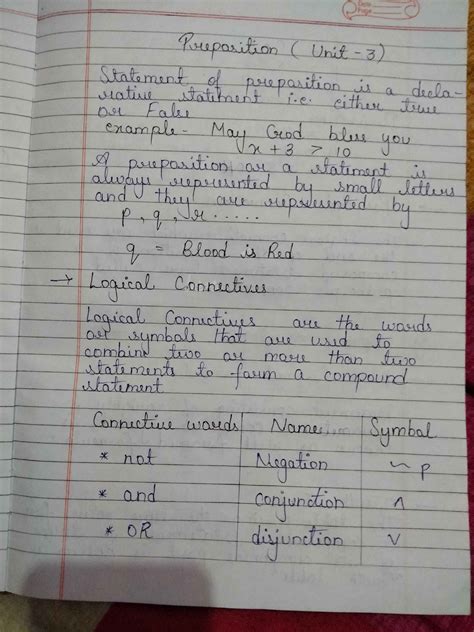 Preposition ( Unit - 3 )
Statement of preposition is a decla-
rative statement i.e. either true
or False
example - May God bless you
x + 3 > 10
A preposition or a statement is
always represented by small letters
and they are represented by
p, q, r . . . . .
q = Blood is Red
→ Logical Connectives
Logical Connectives are the words
or symbols that are used to
combine two or more than two
statements to form a compound
statement
Connective words Name Symbol
* not Negation ~ p
* and conjunction ∧
* OR disjunction ∨